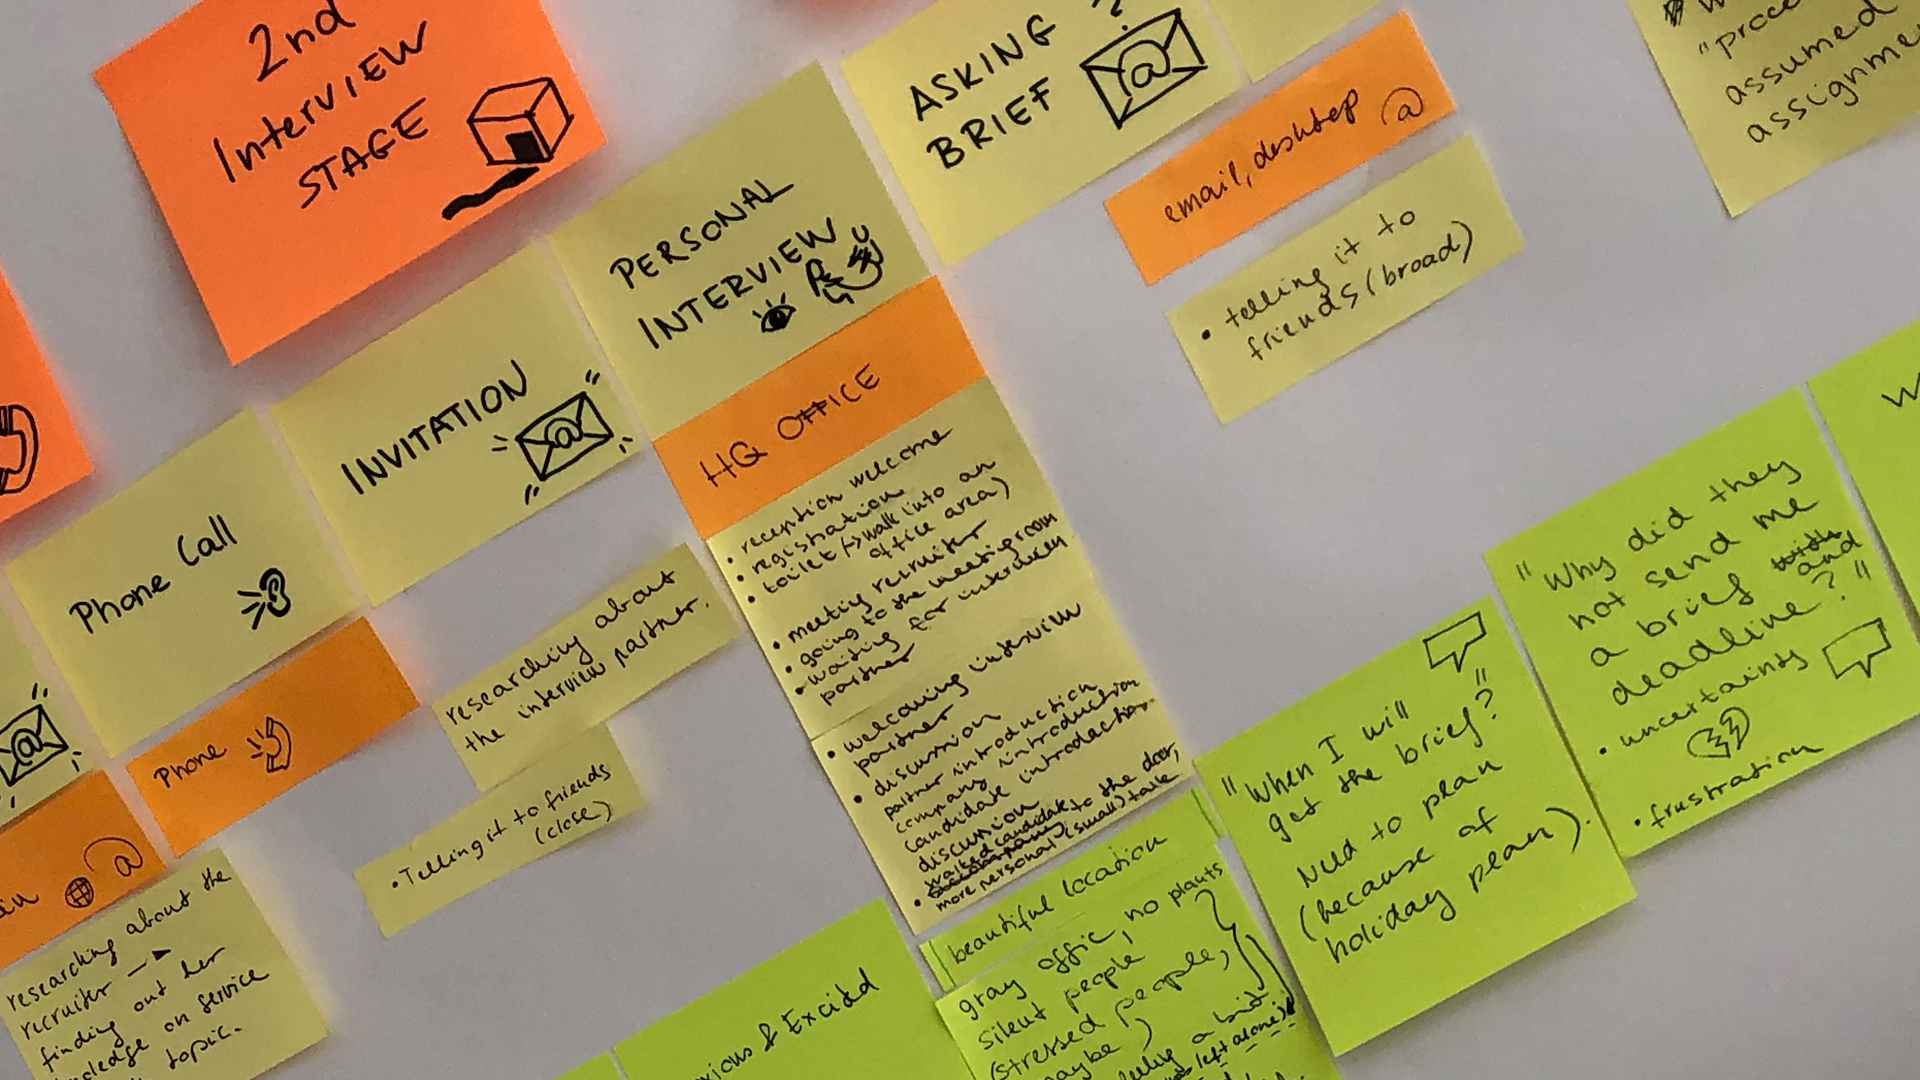 2nd
Interview
STAGE
Phone Call
Phone
researching about the
recruiter →
finding out her
on service
topic.
INVITATION
researching about
the interview partner.
• Telling it to friends
(close)
PERSONAL
INTERVIEW
HQ OFFICE
• reception welcome
• registration
• toilet (→ walk into an
office area)
• meeting recruiter
• going to the meetingroom
• waiting for interview
partner
• welcoming interview
partner
• discussion
partner introduction
company introduction
candidate introduction
discussion
• walked candidate to the door,
more personal (small) talk
beautiful location
gray office, no plants
silent people,
(stressed people,
maybe)
left alone)
& Excited
ASKING
BRIEF ?
@
email, desktop @
• telling it to
friends (broad)
"When I will
get the brief?"
Need to plan
(because of
holiday plan).
"Why did they
not send me
a brief and
deadline?"
• uncertainty
• frustration
assumed